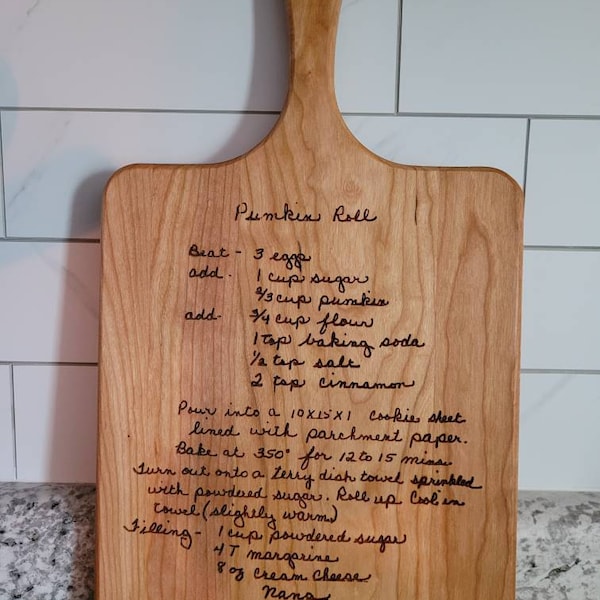 Pumkin Roll
Beat - 3 eggs
add - 1 cup sugar
2/3 cup pumkin
add - 3/4 cup flour
1 tsp baking soda
1/2 tsp salt
2 tsp cinnamon
Pour into a 10x15x1 cookie sheet
lined with parchment paper.
Bake at 350° for 12 to 15 mins.
Turn out onto a terry dish towel sprinkled
with powdered sugar. Roll up Cool in
towel (slightly warm)
Filling - 1 cup powdered sugar
4 T margarine
8 oz Cream Cheese
Nana